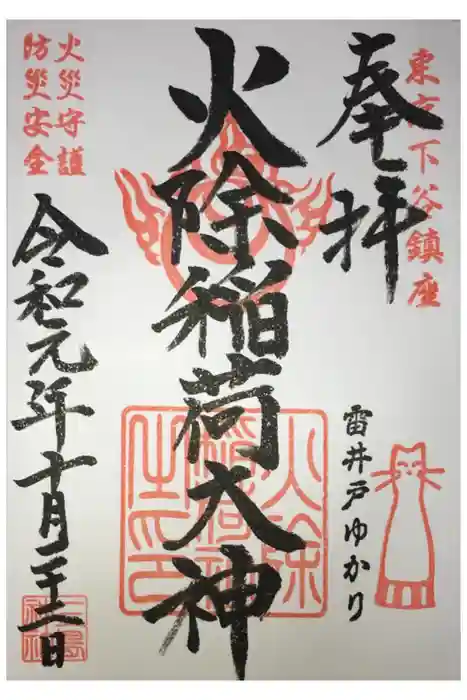 東京下谷鎮座
奉拝
火除稲荷大神
火除稲荷神社之印
雷井戸ゆかり
火災守護
防災安全
令和元年十月二十二日
三島神社